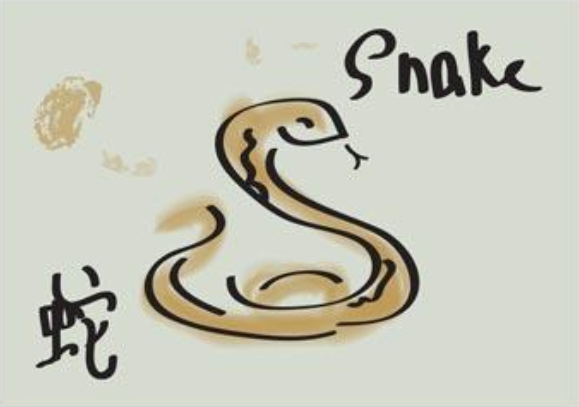 Snake
蛇